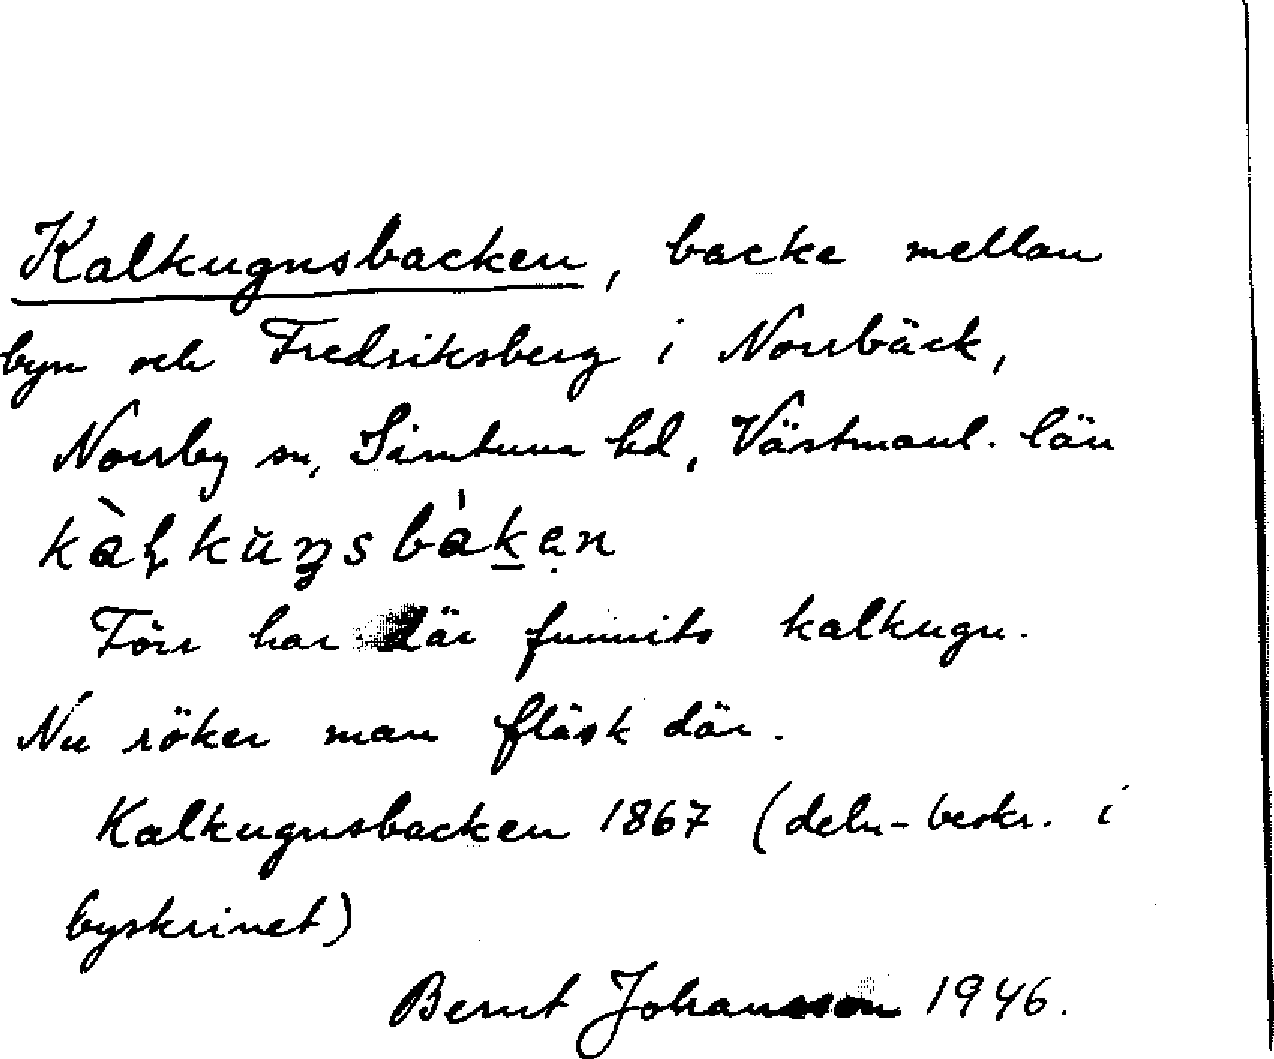 Kalkugnsbacken, backe mellan
byn och Fredriksberg i Norrbäck,
Norrby sn, Simtuna hd, Västmanl. län
kàḷkŭŋsbàkẹn
Förr har där funnits kalkugn.
Nu röker man fläsk där.
Kalkugnsbacken 1867 (deln-beskr. i
byskrinet)
Bernt Johansson 1946.